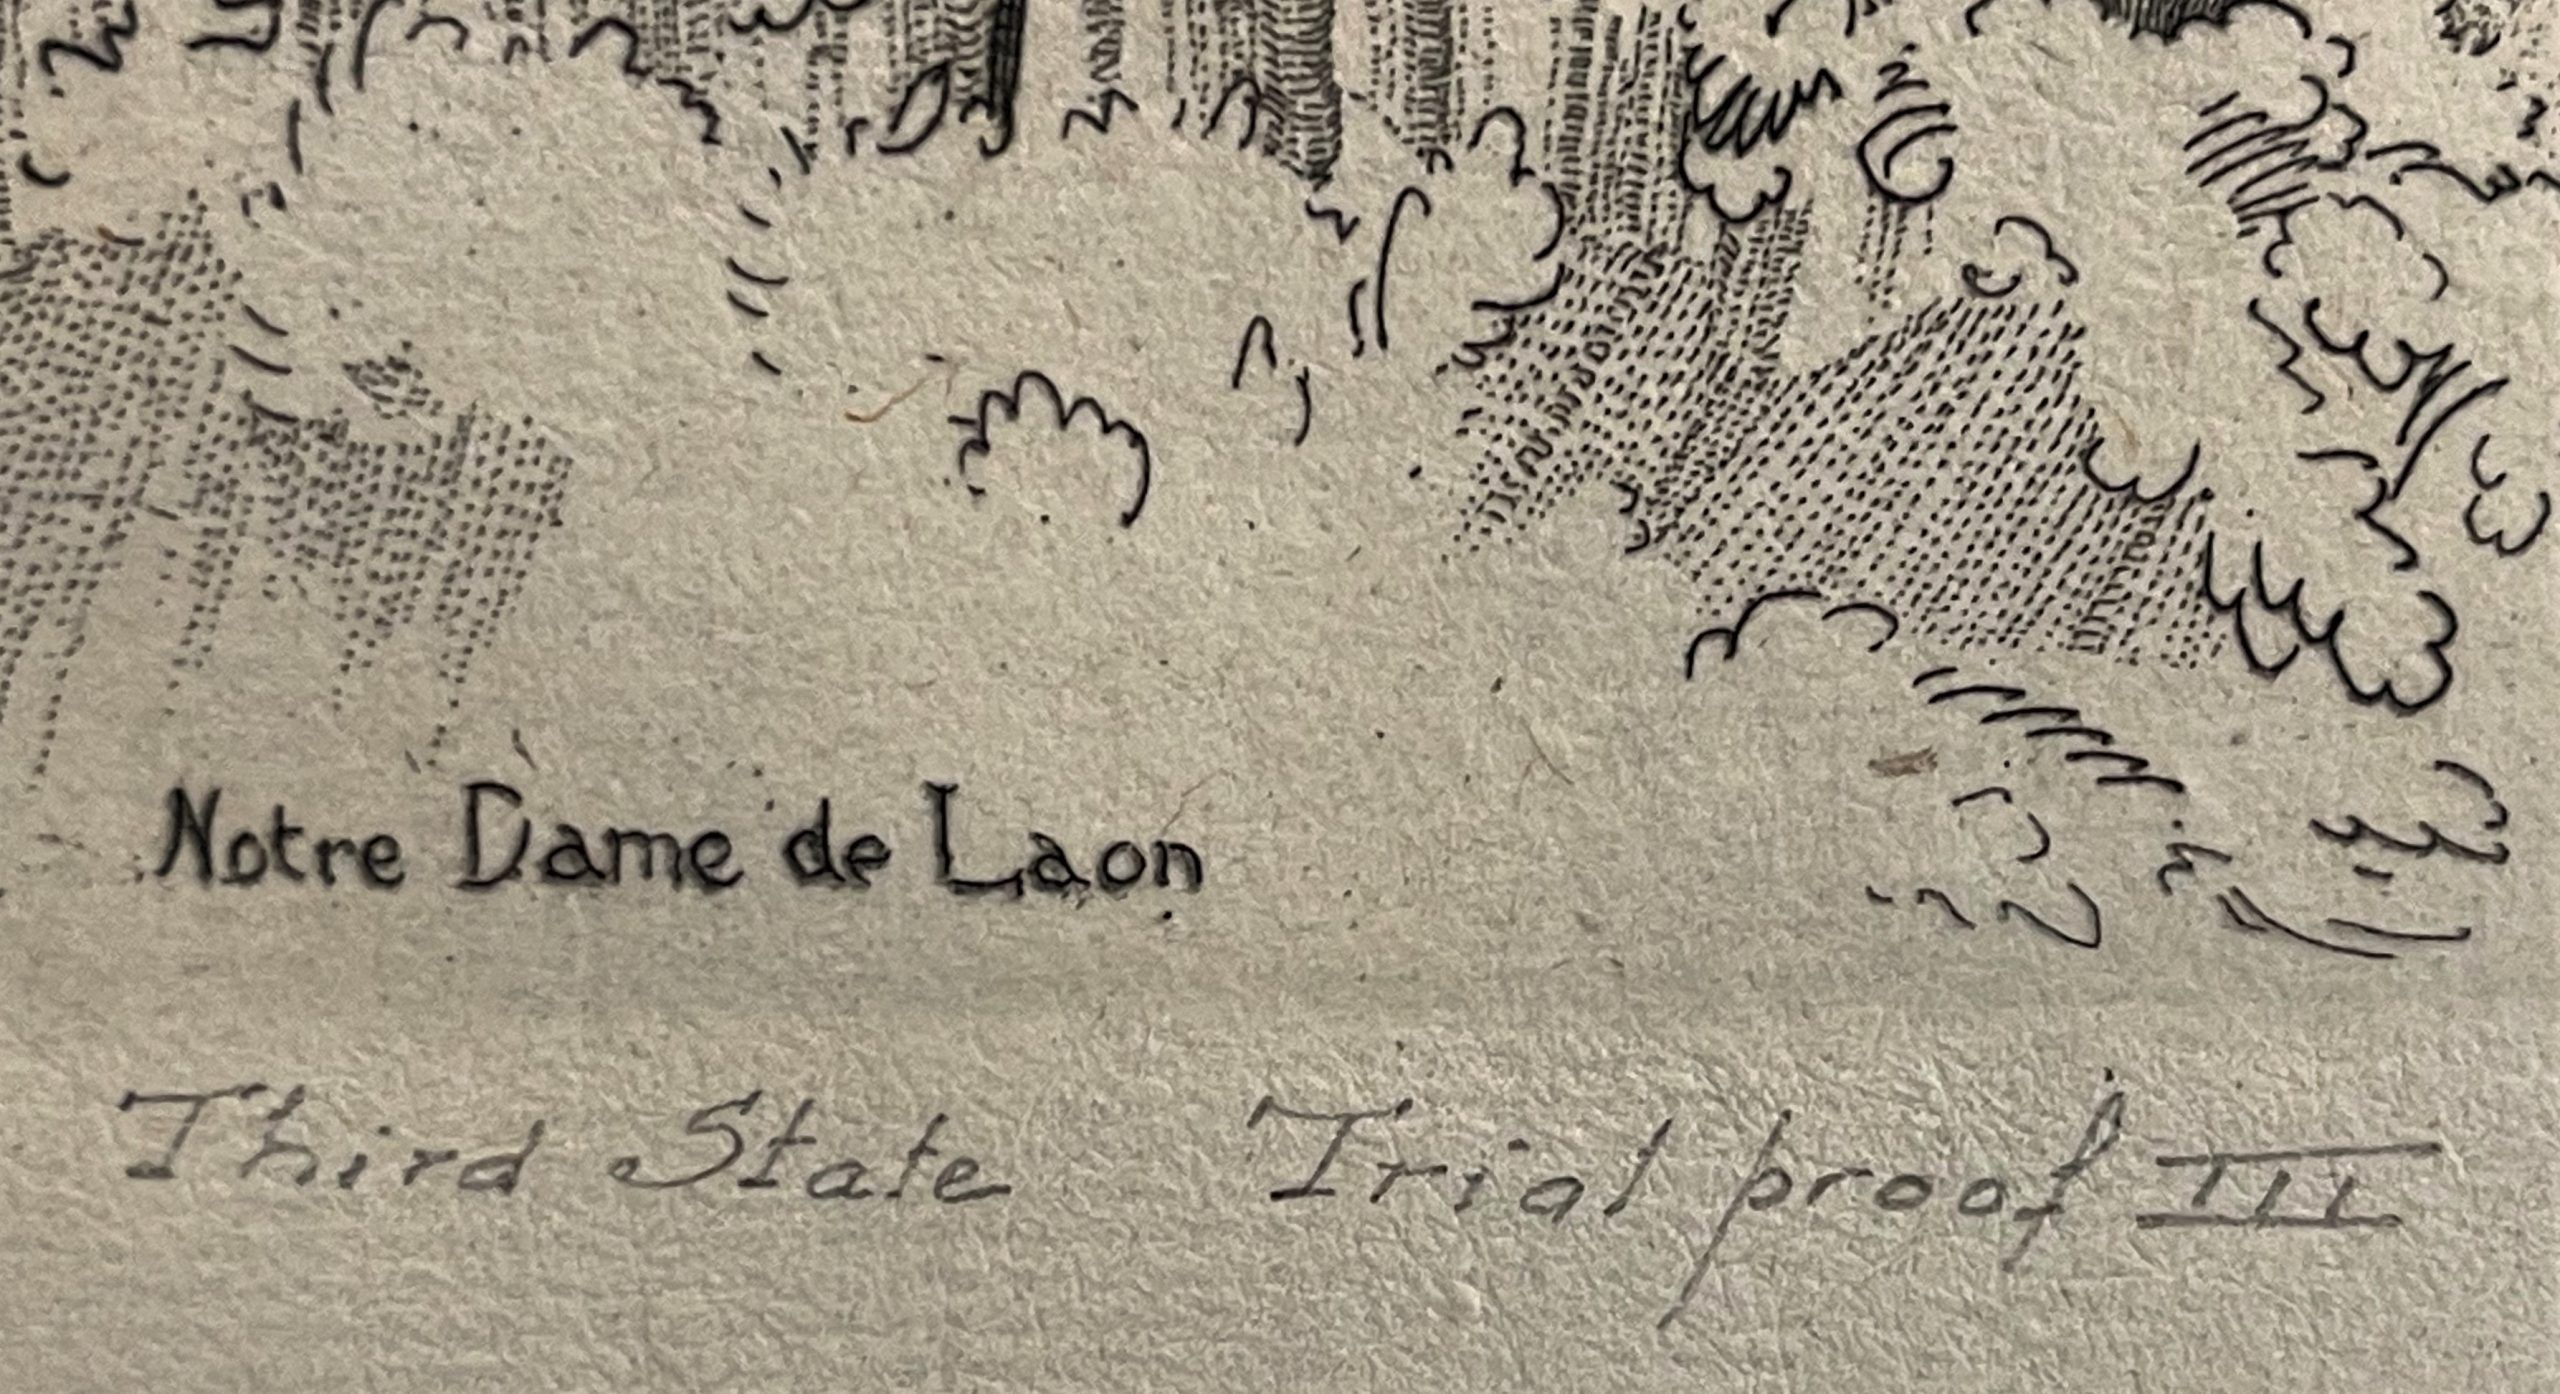 Notre Dame de Laon
Third State Trial proof III